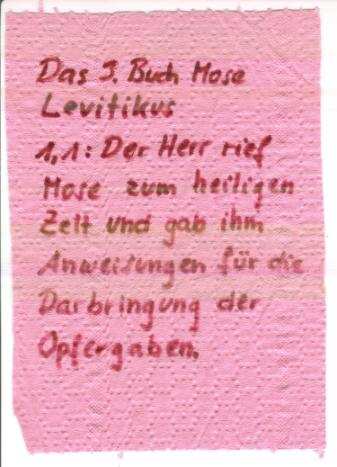 Das 3. Buch Mose
Levitikus
1,1: Der Herr rief
Mose zum heiligen
Zelt und gab ihm
Anweisungen für die
Darbringung der
Opfergaben.